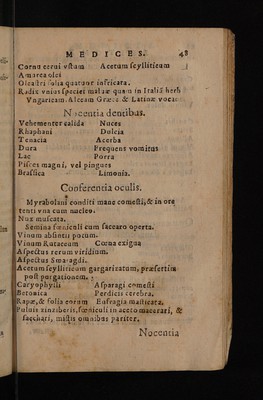 MEDICES. 48
Cornu cerui vstum Acetum scylliticum
Amurca olei
Oleastri folia quatuor infricata.
Radix vnius speciei maluæ quam in Italia herb
Vngaricam. Alceam Græce & Latinæ voce
Nocentia dentibus.
Vehementer calida Nuces
Rhaphani Dulcia
Tenacia Acerba
Dura Frequens vomitus
Lac Porra
Pisces magni, vel pingues
Brassica Limonia.
Conferentia oculis.
Myrabolani conditi mane comesti, & in ore
tenti vna cum nucleo.
Nux muscata.
Semina fœniculi cum saccaro operta.
Vinum absintij potum.
Vinum Rutaceum Cœna exigua
Aspectus rerum viridium.
Aspectus Smaragdi.
Acetum scylliticum gargarizatum, præsertim
post purgationem.
Caryophylli Asparagi comesti
Betonica Perdicis cerebra.
Rapæ, & folia eorum Eufragia masticata.
Puluis zinziberis, fœniculi in aceto macerati, &
sacchari, mistis omnibus pariter.
Nocentia